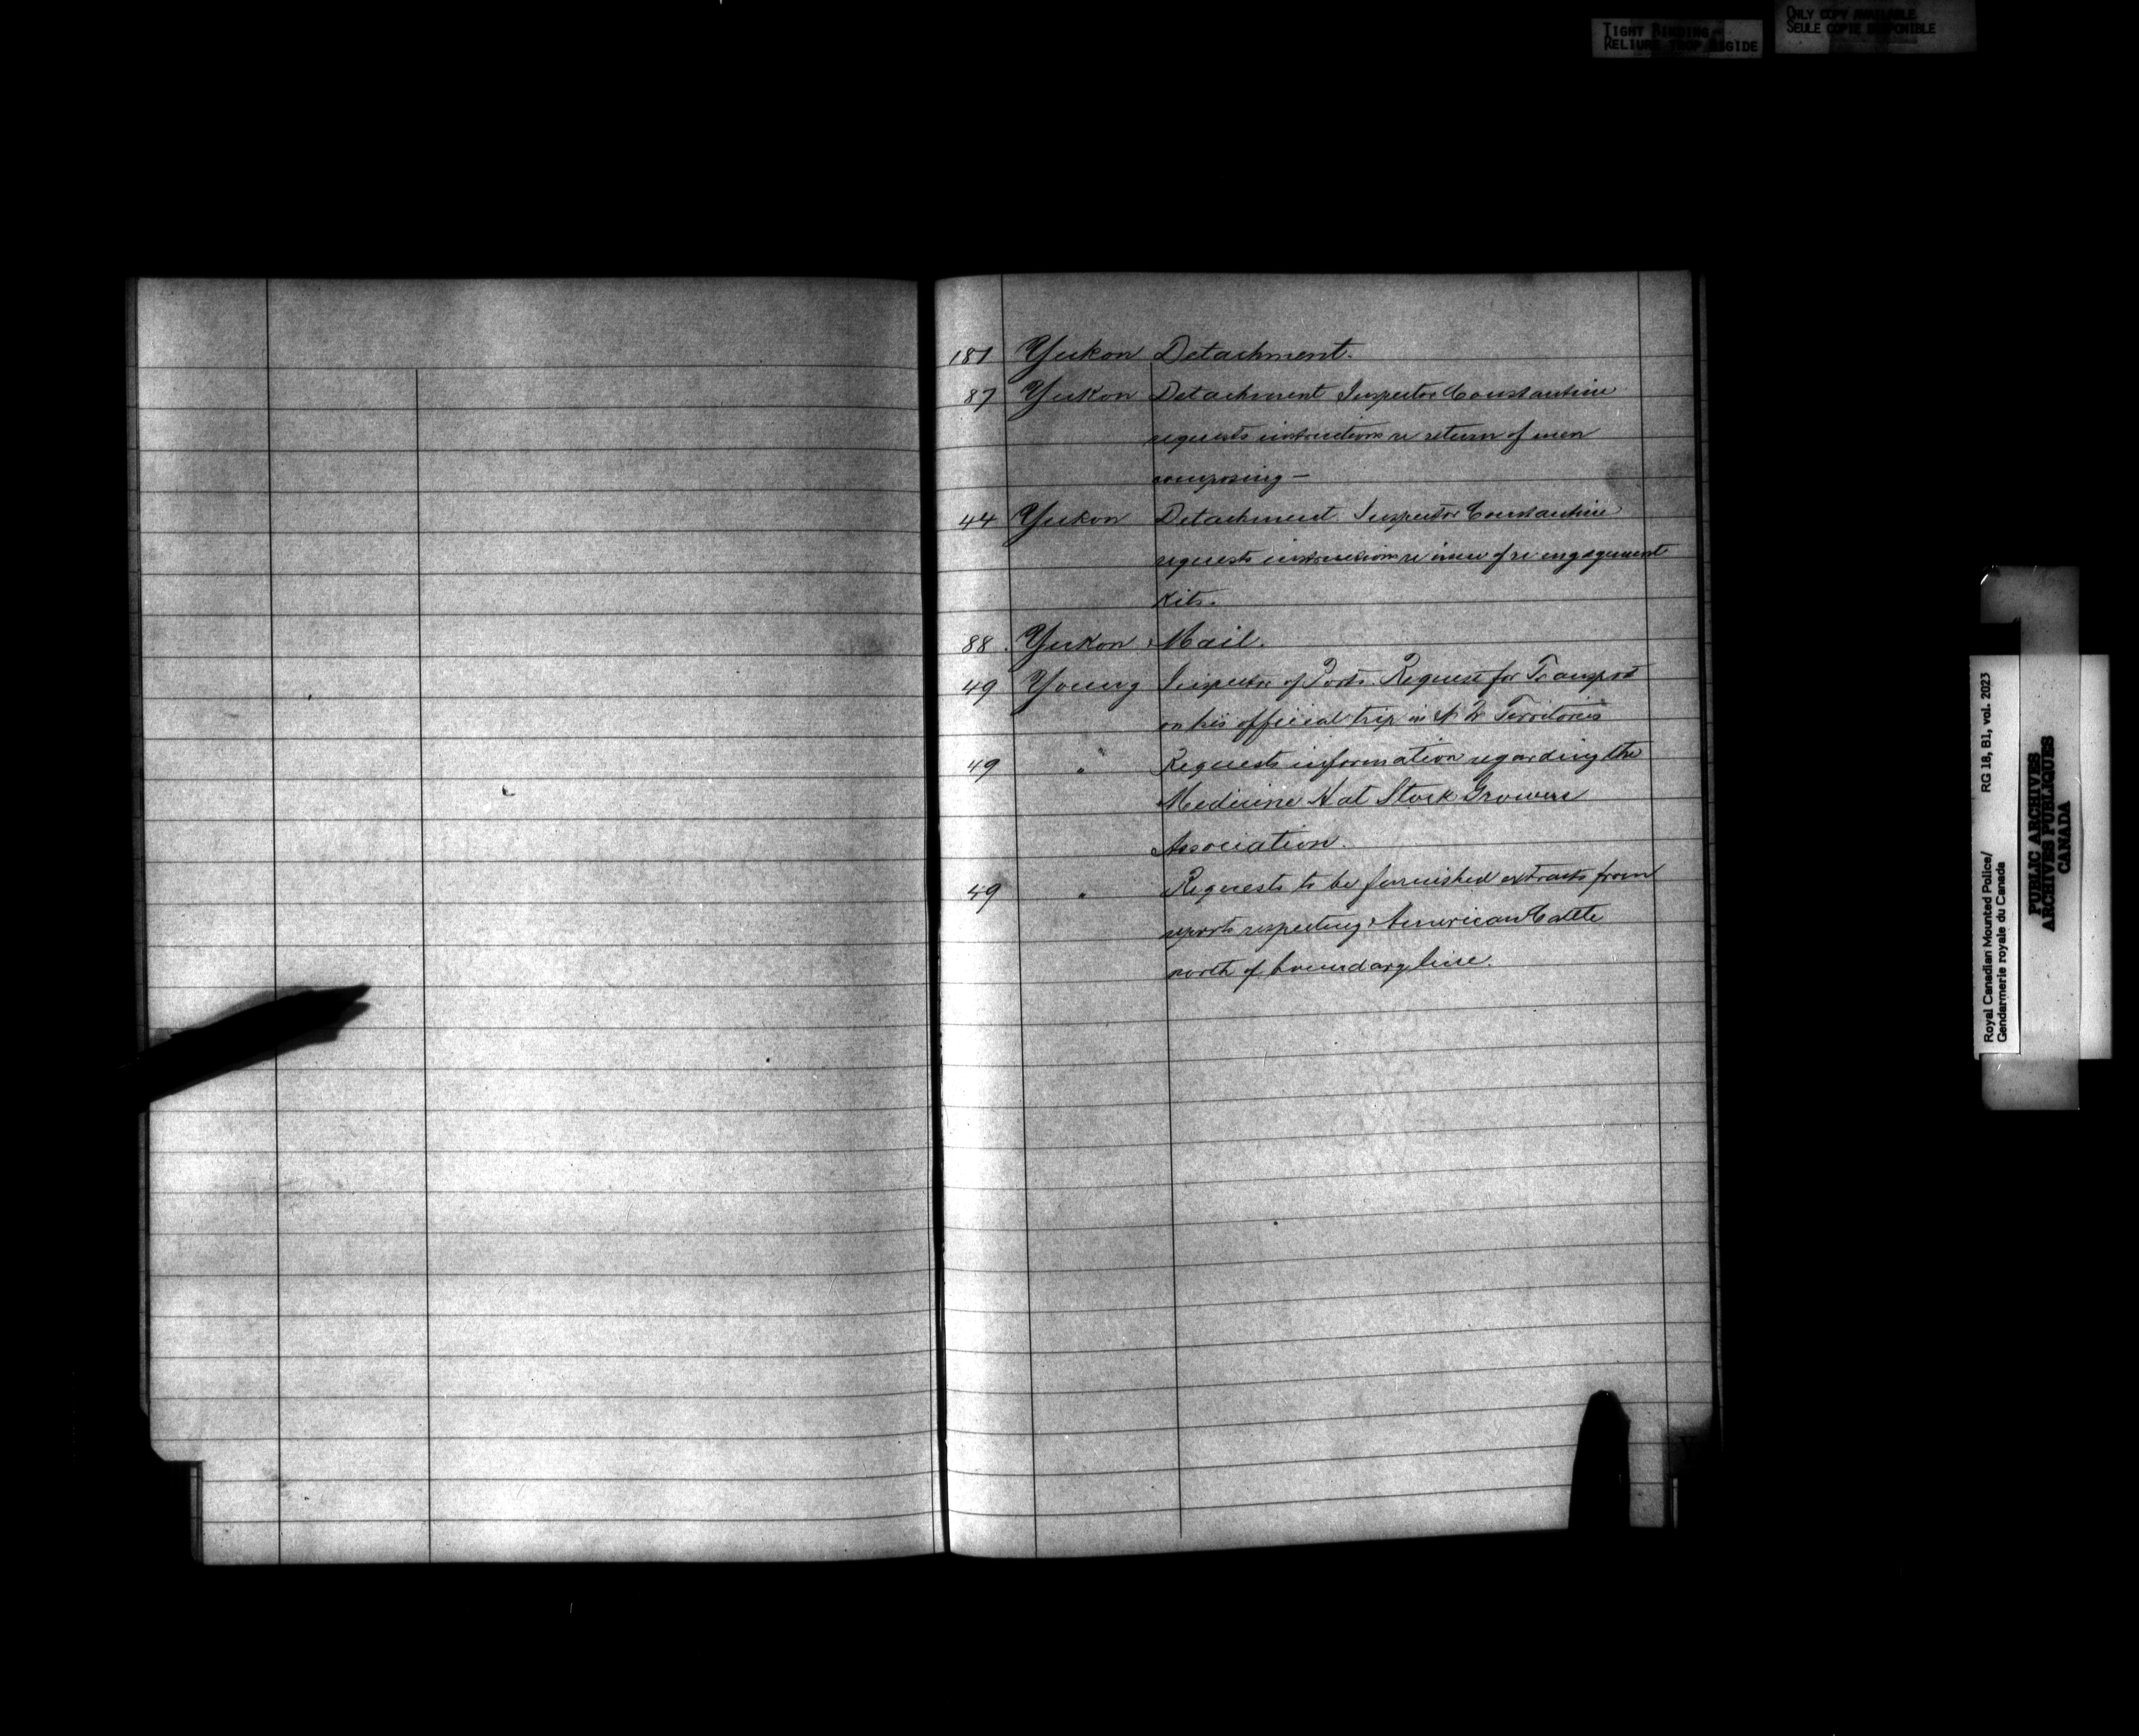 TIGHT BINDING
RELIURE TROP RIGIDE
ONLY COPY AVAILABLE
SEULE COPIE DISPONIBLE
181 Yukon Detachment.
87 Yukon Detachment Inspector Constantine
requests instructions re return of men
composing —
44 Yukon Detachment Inspector Constantine
requests instructions re issue of re engagement
Kits.
88 Yukon Mail.
49 Young Inspector of Ports. Request for Transport
on his official trip in N W Territories
49 " Requests information regarding the
Medicine Hat Stock Growers
Association.
49 " Requests to be furnished extracts from
reports respecting American Cattle
north of boundary line.
Royal Canadian Mounted Police/ RG 18, B1, vol. 2023
Gendarmerie royale du Canada
PUBLIC ARCHIVES
ARCHIVES PUBLIQUES
CANADA